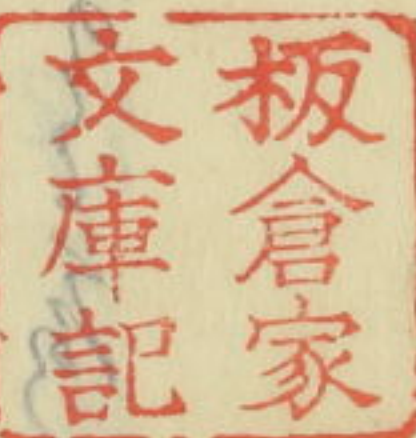 板倉家
文庫記